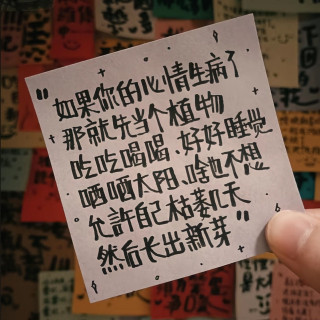 "如果你的心情生病了
那就先当个植物
吃吃喝喝、好好睡觉
晒晒太阳、啥也不想
允許自己枯萎几天
然后长出新芽"